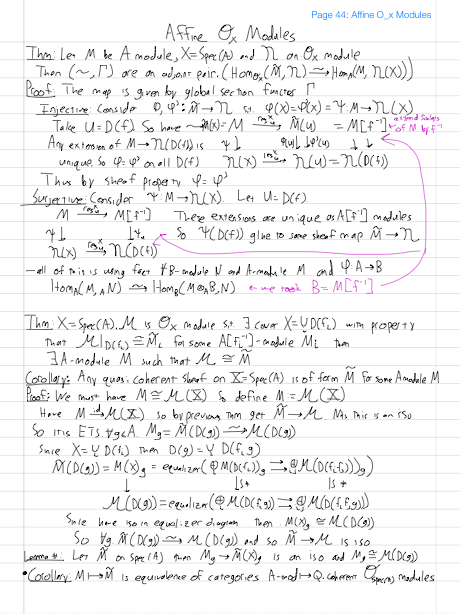 Page 44: Affine O_x Modules
Affine O_x Modules
Thm: Let M be A module, X=Spec(A) and 𝒩 an O_x module
Then (~, Γ) are an adjoint pair. (Hom_{O_x}(M̃, 𝒩) ⥲ Hom_A(M, 𝒩(X)))
Proof: The map is given by global section functor Γ
Injective: Consider φ, φ': M̃→𝒩 s.t. φ(X)=φ'(X)=Ψ: M→𝒩(X)
Take U=D(f). So have M̃(X)=M —res→ M̃(U) = M[f⁻¹] extend scalars of M by f⁻¹
Any extension of M→𝒩(D(f)) is Ψ↓ φ(U)↓↓φ'(U) ↓↓
unique. So φ=φ' on all D(f) 𝒩(X) —res→ 𝒩(U)=𝒩(D(f))
Thus by sheaf property φ=φ'
Surjective: Consider Ψ: M→𝒩(X). Let U=D(f)
M —res→ M[f⁻¹] These extensions are unique as A[f⁻¹] modules
Ψ↓ ↓Ψ_U So Ψ(D(f)) glue to some sheaf map M̃→𝒩
𝒩(X) —res→ 𝒩(D(f))
- all of this is using fact ∀B-module N and A-module M and φ:A→B
Hom_A(M, _A N) ⥲ Hom_B(M⊗_A B, N) ← we took B=M[f⁻¹]
Thm: X=Spec(A). ℳ is O_x module s.t. ∃ cover X=⋃D(f_i) with property
that ℳ|_{D(f_i)} ≅ M̃_i for some A[f_i⁻¹]-module M_i then
∃ A-module M such that ℳ ≅ M̃
Corollary: Any quasi coherent sheaf on X=Spec(A) is of form M̃ for some A module M
Proof: We must have M≅ℳ(X) So define M:=ℳ(X)
Have M —id→ ℳ(X) so by previous Thm get M̃→ℳ. This is an iso
So it is ETS. ∀g∈A. M_g=M̃(D(g))→ℳ(D(g))
Since X=⋃D(f_i) then D(g)=⋃D(f_i g)
M̃(D(g)) = M(X)_g = equalizer(⊕M(D(f_i))_g ⇉ ⊕M(D(f_i f_j))_g)
↓ ↓≅ ↓≅
ℳ(D(g)) = equalizer(⊕M(D(f_i g)) ⇉ ⊕M(D(f_i f_j g)))
Since have iso in equalizer diagram then M(X)_g ≅ ℳ(D(g))
So ∀g M̃(D(g)) ⥲ ℳ(D(g)) and so M̃→ℳ is iso
Let M̃ on Spec(A) then M_g→M̃(X)_g is an iso and M_g≅ℳ(D(g))
• Corollary: M↦M̃ is equivalence of categories A-mod↦Q.coherent O_{Spec(A)} modules